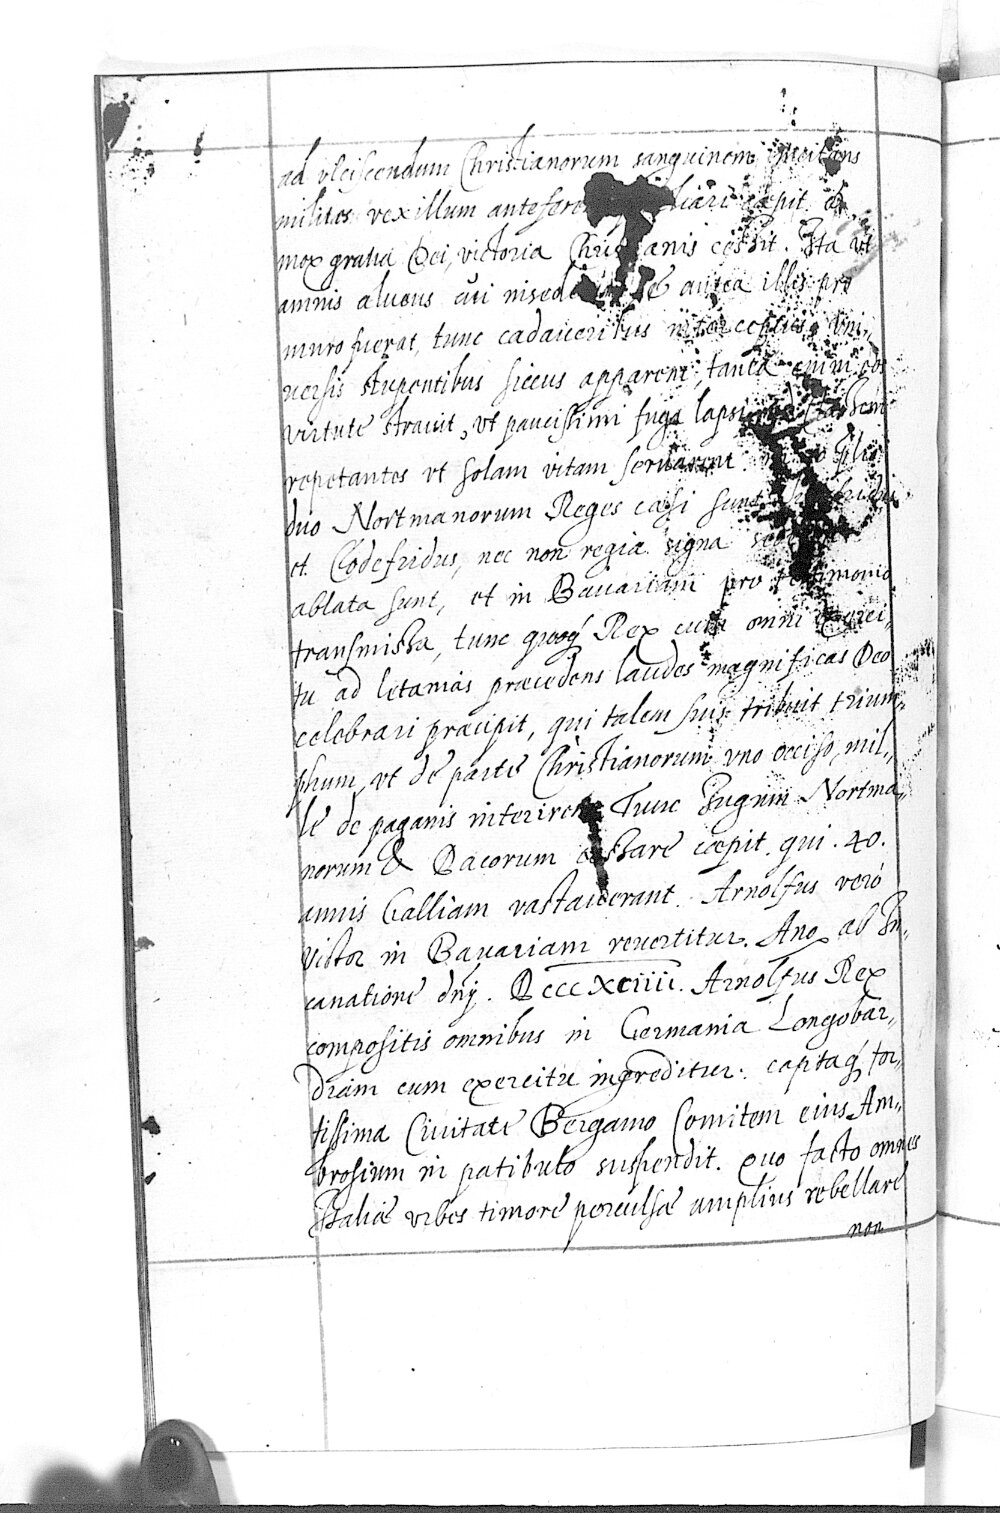 ad vlciscendum Christianorum sanguinem incitans
milites vexillum anteferens liari cæpit. et
mox gratia Dei, victoria Christianis cessit. Ita vt
amnis alueus cui insede antea illis pro
muro fuerat, tunc cadaueribus interceptus, vni,,
uersis stupentibus siccus appareret, tanta enim eos
virtute strauit, vt paucissimi fuga lapsi Classem
repetantes vt solam vitam seruarent
duo Nortmanorum Reges cæsi sunt
et Godefridus, nec non regia signa
ablata sunt, et in Bauariam pro testimonio
transmissa, tunc quoq́ Rex cum omni exerci,,
tu ad letanias præcedens laudes magnificas Deo
celebrari præcipit, qui talem suis tribuit trium,,
phum, vt de parte Christianorum vno occiso, mil,,
le de paganis interirent Tunc Ingrum Nortma,,
norum & Dacorum cessare cæpit. qui . 40.
annis Galliam vastauerant. Arnolfus veró
victor in Bauariam reuertitur. Ano ab In,,
canatione dnj. DcccXciiii. Arnolfus Rex
compositis omnibus in Germania Longobar,,
diam cum exercitu ingreditur: captaq́ for,,
tissima Ciuitate Bergamo Comitem eius Am,,
brosium in patibulo suspendit. quo facto omnes
Italiæ vrbes timore perculsæ amplius rebellare
non